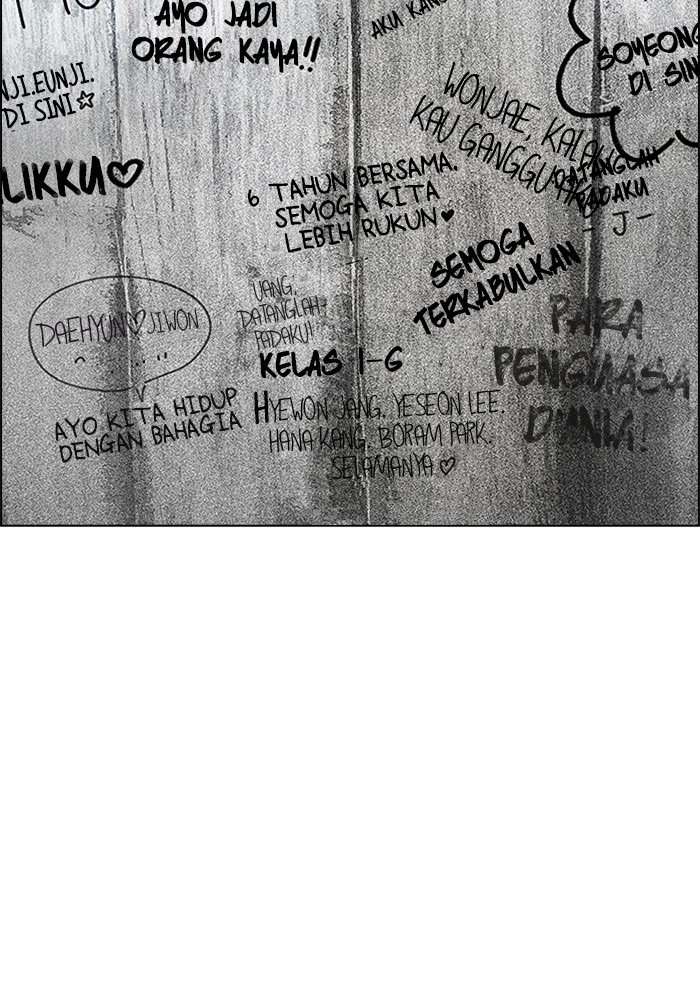 AYO JADI
ORANG KAYA!!
SOYEONG
DI SINI
NJI.EUNJI.
DI SINI☆
WONJAE, KALAU
KAU GANGGU
LIKKU♡
6 TAHUN BERSAMA.
SEMOGA KITA
LEBIH RUKUN♥
DATANGLAH
PADAKU
- J -
SEMOGA
TERKABULKAN
DAEHYUN♡JIWON
UANG,
DATANGLAH
PADAKU!
KELAS 1-6
PARA
PENGUASA
DUNIA!
AYO KITA HIDUP
DENGAN BAHAGIA
HYEWON JANG. YESEON LEE.
HANA KANG. BORAM PARK.
SELAMANYA♡